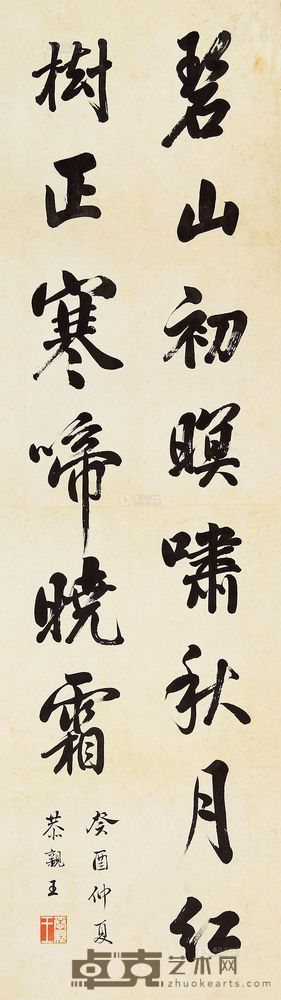 碧山初暝嘯秋月紅
樹正寒啼曉霜
癸酉仲夏
恭親王
卓克艺术网
www.zhuokearts.com